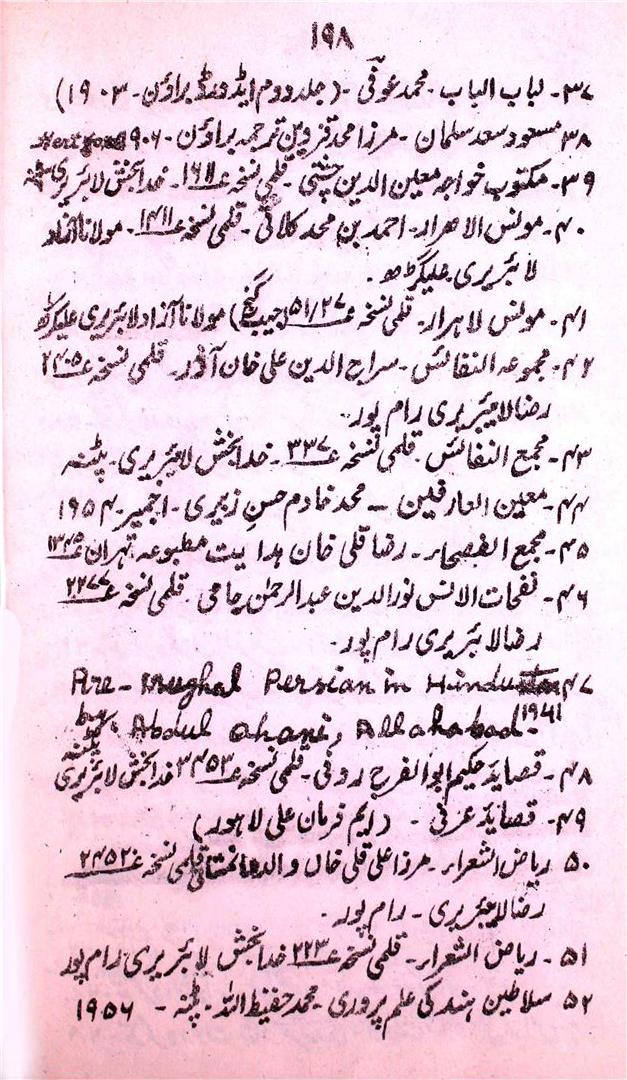 ۱۹۸
۳۷- لباب الباب - محمد عوفی - (جلد دوم ایڈورڈ براؤن - ۱۹۰۳)
۳۸ مسعود سعد سلمان - مرزا محمد قزوین ترجمہ براؤن - ۱۹۰۶
۳۹- مکتوب خواجہ معین الدین چشتی - قلمی نسخہ ۱۶۱۱ - خدا بخش لائبریری پٹنہ
۴۰- مونس الاحرار - احمد بن محمد کلاتی - قلمی نسخہ ۱۴۱۱ - مولانا آزاد
لائبریری علیگڑھ -
۴۱- مونس لاہرار - قلمی نسخہ ۵۱/۲۷ (حبیب گنج) مولانا آزاد لائبریری علیگڑھ
۴۲- مجموعہ النفائس - سراج الدین علی خان آذر - قلمی نسخہ ۲۴۰۵
رضا لائبریری رام پور -
۴۳- مجمع النفائس - قلمی نسخہ ۳۳۷ - خدا بخش لائبریری - پٹنہ
۴۴- معین العارفین - محمد خادم حسن زبیری - اجمیر ۱۹۵۴
۴۵- مجمع الفصحاء - رضا قلی خان ہدایت مطبوعہ تہران ۱۳۴۵
۴۶- نفحات الانس نورالدین عبدالرحمٰن جامی - قلمی نسخہ ۲۲۷۷
رضا لائبریری رام پور -
۴۷ Pre-Mughal Persian in Hindustan
by Abdul Ghani, Allahabad - 1941
۴۸- قصاید حکیم ابوالفرح رونی - قلمی نسخہ ۳۴۵۳ خدا بخش لائبریری پٹنہ
۴۹- قصاید عرفی - (ایم فرمان علی لاہور)
۵۰ ریاض الشعراء - مرزا علی قلی خاں والہ داغستانی قلمی نسخہ ۲۴۵۲
رضا لائبریری - رام پور -
۵۱- ریاض الشعراء - قلمی نسخہ ۲۲۳ خدا بخش لائبریری رام پور
۵۲ سلاطین ہند کی علم پروری - محمد حفیظ اللہ - پٹنہ - ۱۹۵۶